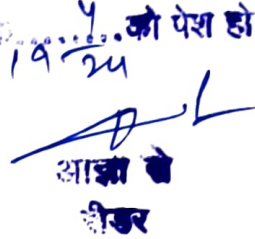 19 4/24 को पेश हो
आज्ञा से
रीडर